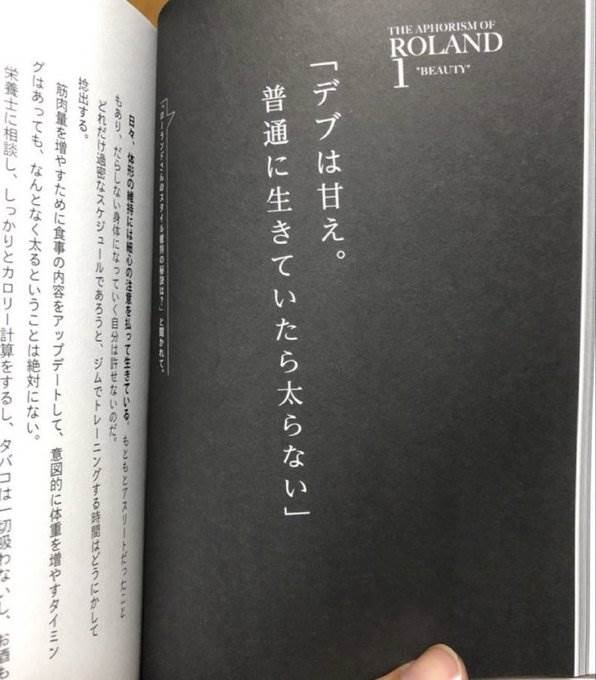 THE APHORISM OF
ROLAND
1 "BEAUTY"
「デブは甘え。
普通に生きていたら太らない」
「ローランドさんのスタイル維持の秘訣は?」と聞かれて。
日々、体形の維持には細心の注意を払って生きている。もともとアスリートだったこと
もあり、だらしない身体になっていく自分は許せないのだ。
どれだけ過密なスケジュールであろうと、ジムでトレーニングする時間はどうにかして
捻出する。
筋肉量を増やすために食事の内容をアップデートして、意図的に体重を増やすタイミン
グはあっても、なんとなく太るということは絶対にない。
栄養士に相談し、しっかりとカロリー計算をするし、タバコは一切吸わないし、お酒も